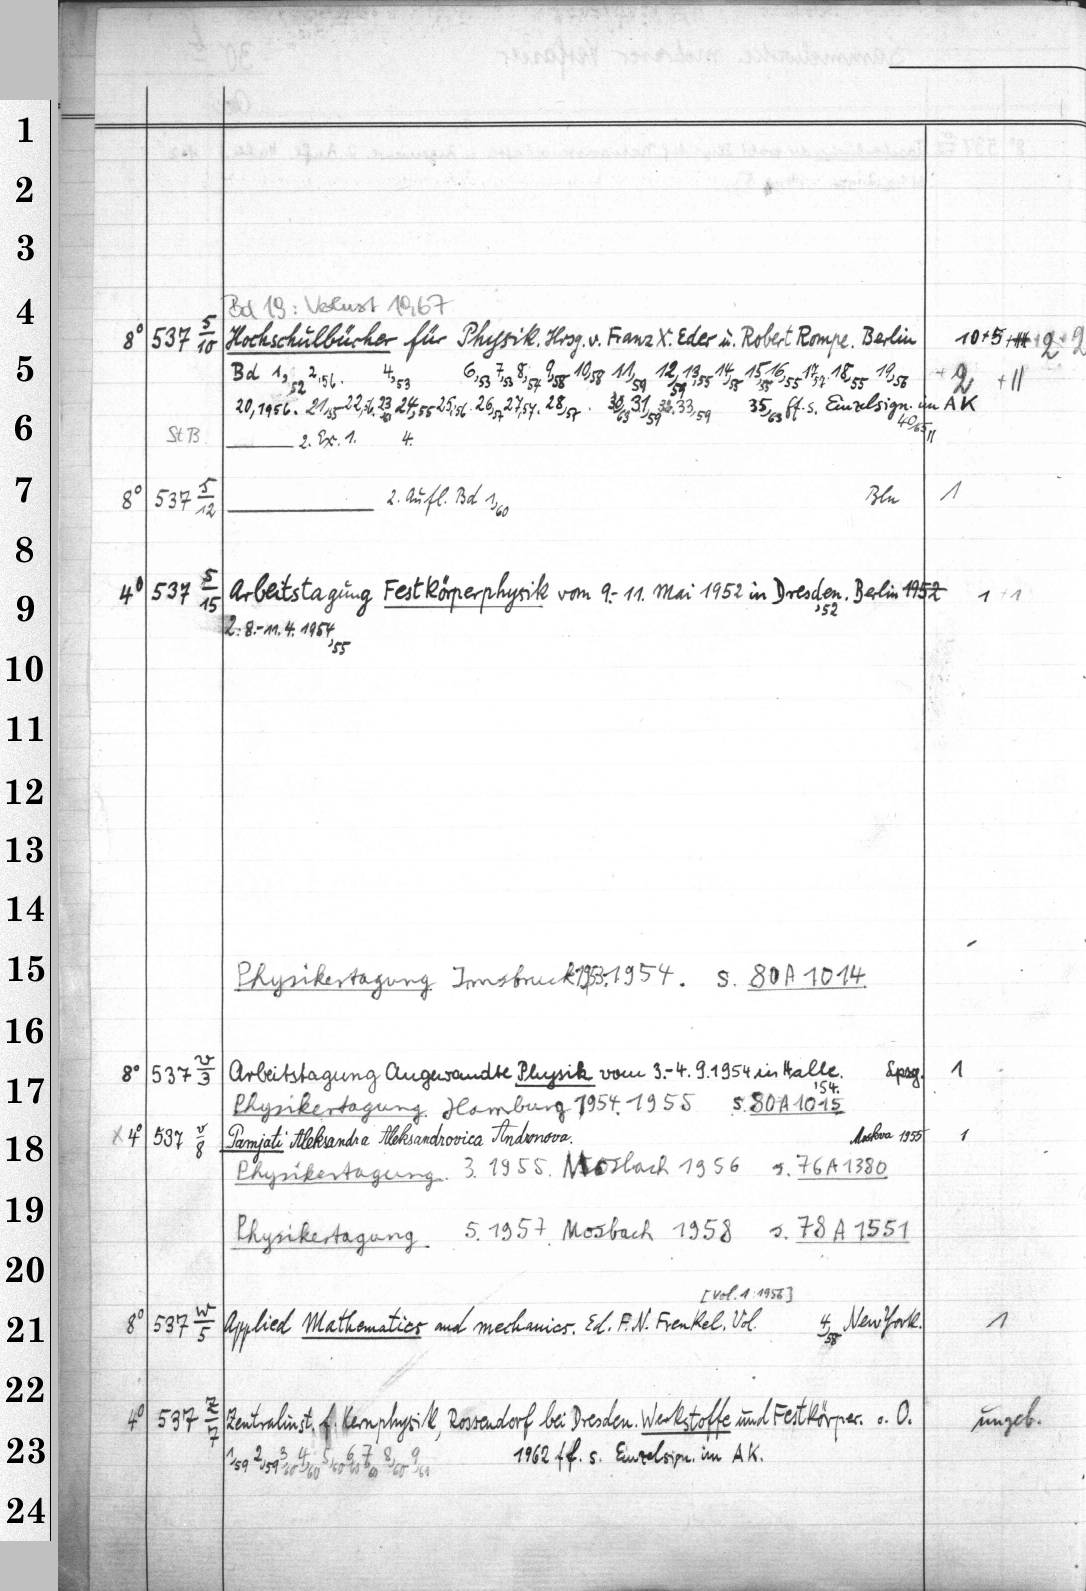 1
2
3
4 Bd 19: Verlust 10,67
8° 537 5/10 Hochschulbücher für Physik. Hrsg. v. Franz X. Eder u. Robert Rompe. Berlin 10+5+11+2+2
5 Bd 1,52 2,56. 4,53 6,53 7,53 8,57 9,58 10,58 11,59 12,59 13,55 14,58 15,55 16,55 17,57 18,55 19,56 +2 +11
20,1956. 21,55 22,56 23 24,55 25,56 26,57 27,57. 28,57. 30,63 31,59 33,59 35,63 ff. s. Einzelsign. im AK
6 StB 2. Ex. 1. 4. 40/65
7 8° 537 5/12 2. Aufl. Bd 1,60 Bln 1
8
9 4° 537 5/15 Arbeitstagung Festkörperphysik vom 9.-11. Mai 1952 in Dresden. Berlin 1952 1 +1
,52
2. 8.-11.4. 1954,55
10
11
12
13
14
15 Physikertagung Innsbruck 1953. 1954. s. 80A1014
16
17 8° 537 v/3 Arbeitstagung Angewandte Physik vom 3.-4. 9. 1954 in Halle. '54. Lpzg. 1
Physikertagung Hamburg 1954. 1955 s. 80A1015
18 x 4° 537 v/8 Pamjati Aleksandra Aleksandrovica Andronova. Moskva 1955 1
Physikertagung. 3. 1955. Mosbach 1956 s. 76A1380
19 Physikertagung. 5. 1957. Mosbach 1958 s. 78A1551
20 [Vol. 1 1956]
21 8° 537 w/5 Applied Mathematics and mechanics. Ed. F.N. Frenkel. Vol. 4,58 New York. 1
22
4° 537 z/7 Zentralinst. f. Kernphysik, Rossendorf bei Dresden. Werkstoffe und Festkörper. o. O. ungeb.
23 1,59 2,59 3,60 4,60 5,60 6,60 7,60 8,60 9,61 1962 ff. s. Einzelsign. im AK.
24